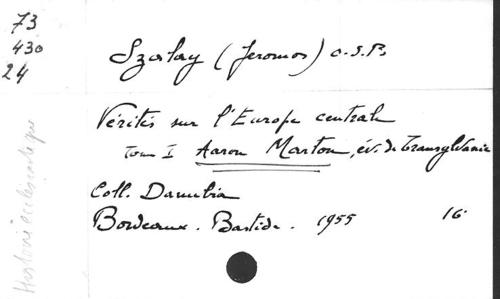 73
430
24
Szalay (Jeromos) O.S.B.
Vérités sur l'Europe centrale
Tome I Aaron Marton, év. de Transylvanie
Coll. Danubia
Bordeaux. Bastide. 1955 16
Histoire ecclésiastique